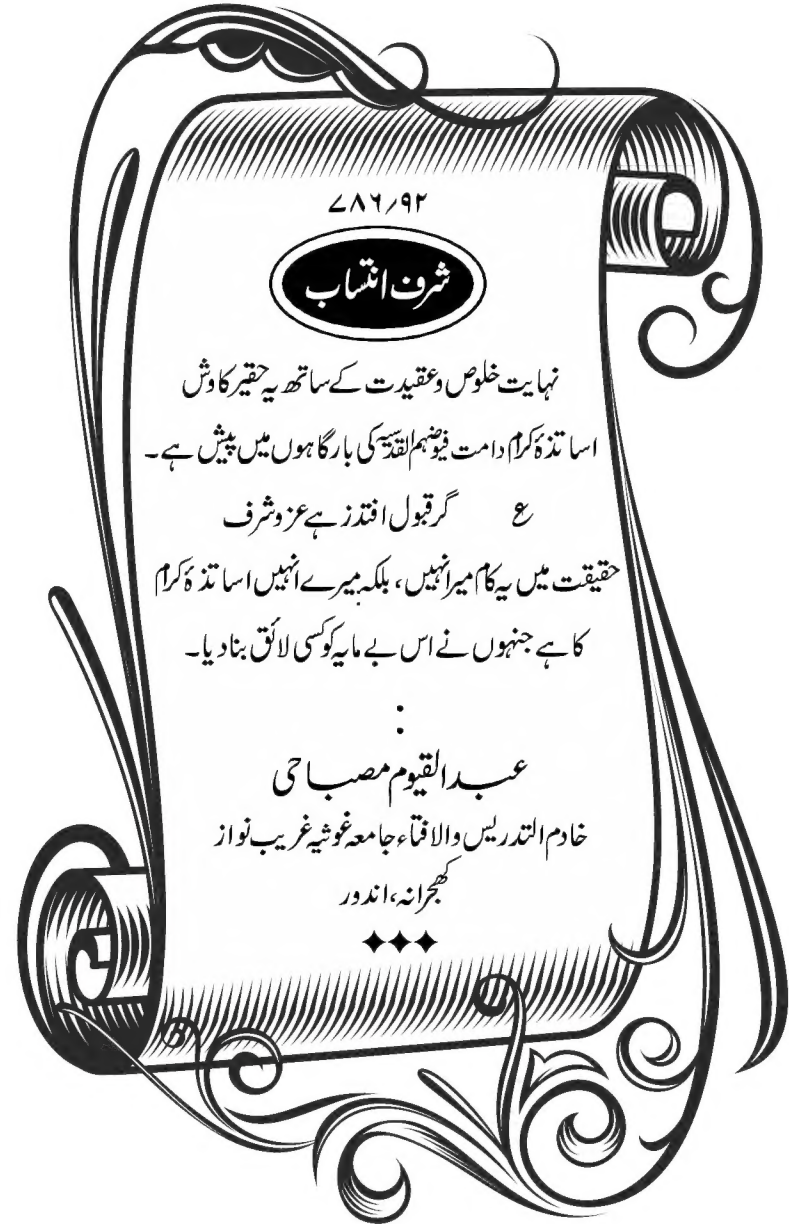 ۷۸۶/۹۲
شرف انتساب
نہایت خلوص وعقیدت کے ساتھ یہ حقیر کاوش
اساتذۂ کرام دامت فیوضہم القدسیہ کی بارگاہوں میں پیش ہے۔
ع گر قبول افتد ز ہے عز وشرف
حقیقت میں یہ کام میرا نہیں، بلکہ میرے انہیں اساتذۂ کرام
کا ہے جنہوں نے اس بے مایہ کو کسی لائق بنا دیا۔
:
عبدالقیوم مصباحی
خادم التدریس والافتاء جامعہ غوثیہ غریب نواز
کھجرانہ، اندور